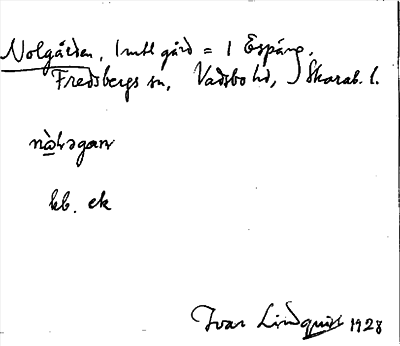 Nolgården, 1 mtl gård = 1 Espång,
Fredsbergs sn, Vadsbo hd, Skarab. l.
kb. ek
Ivar Lindquist 1928